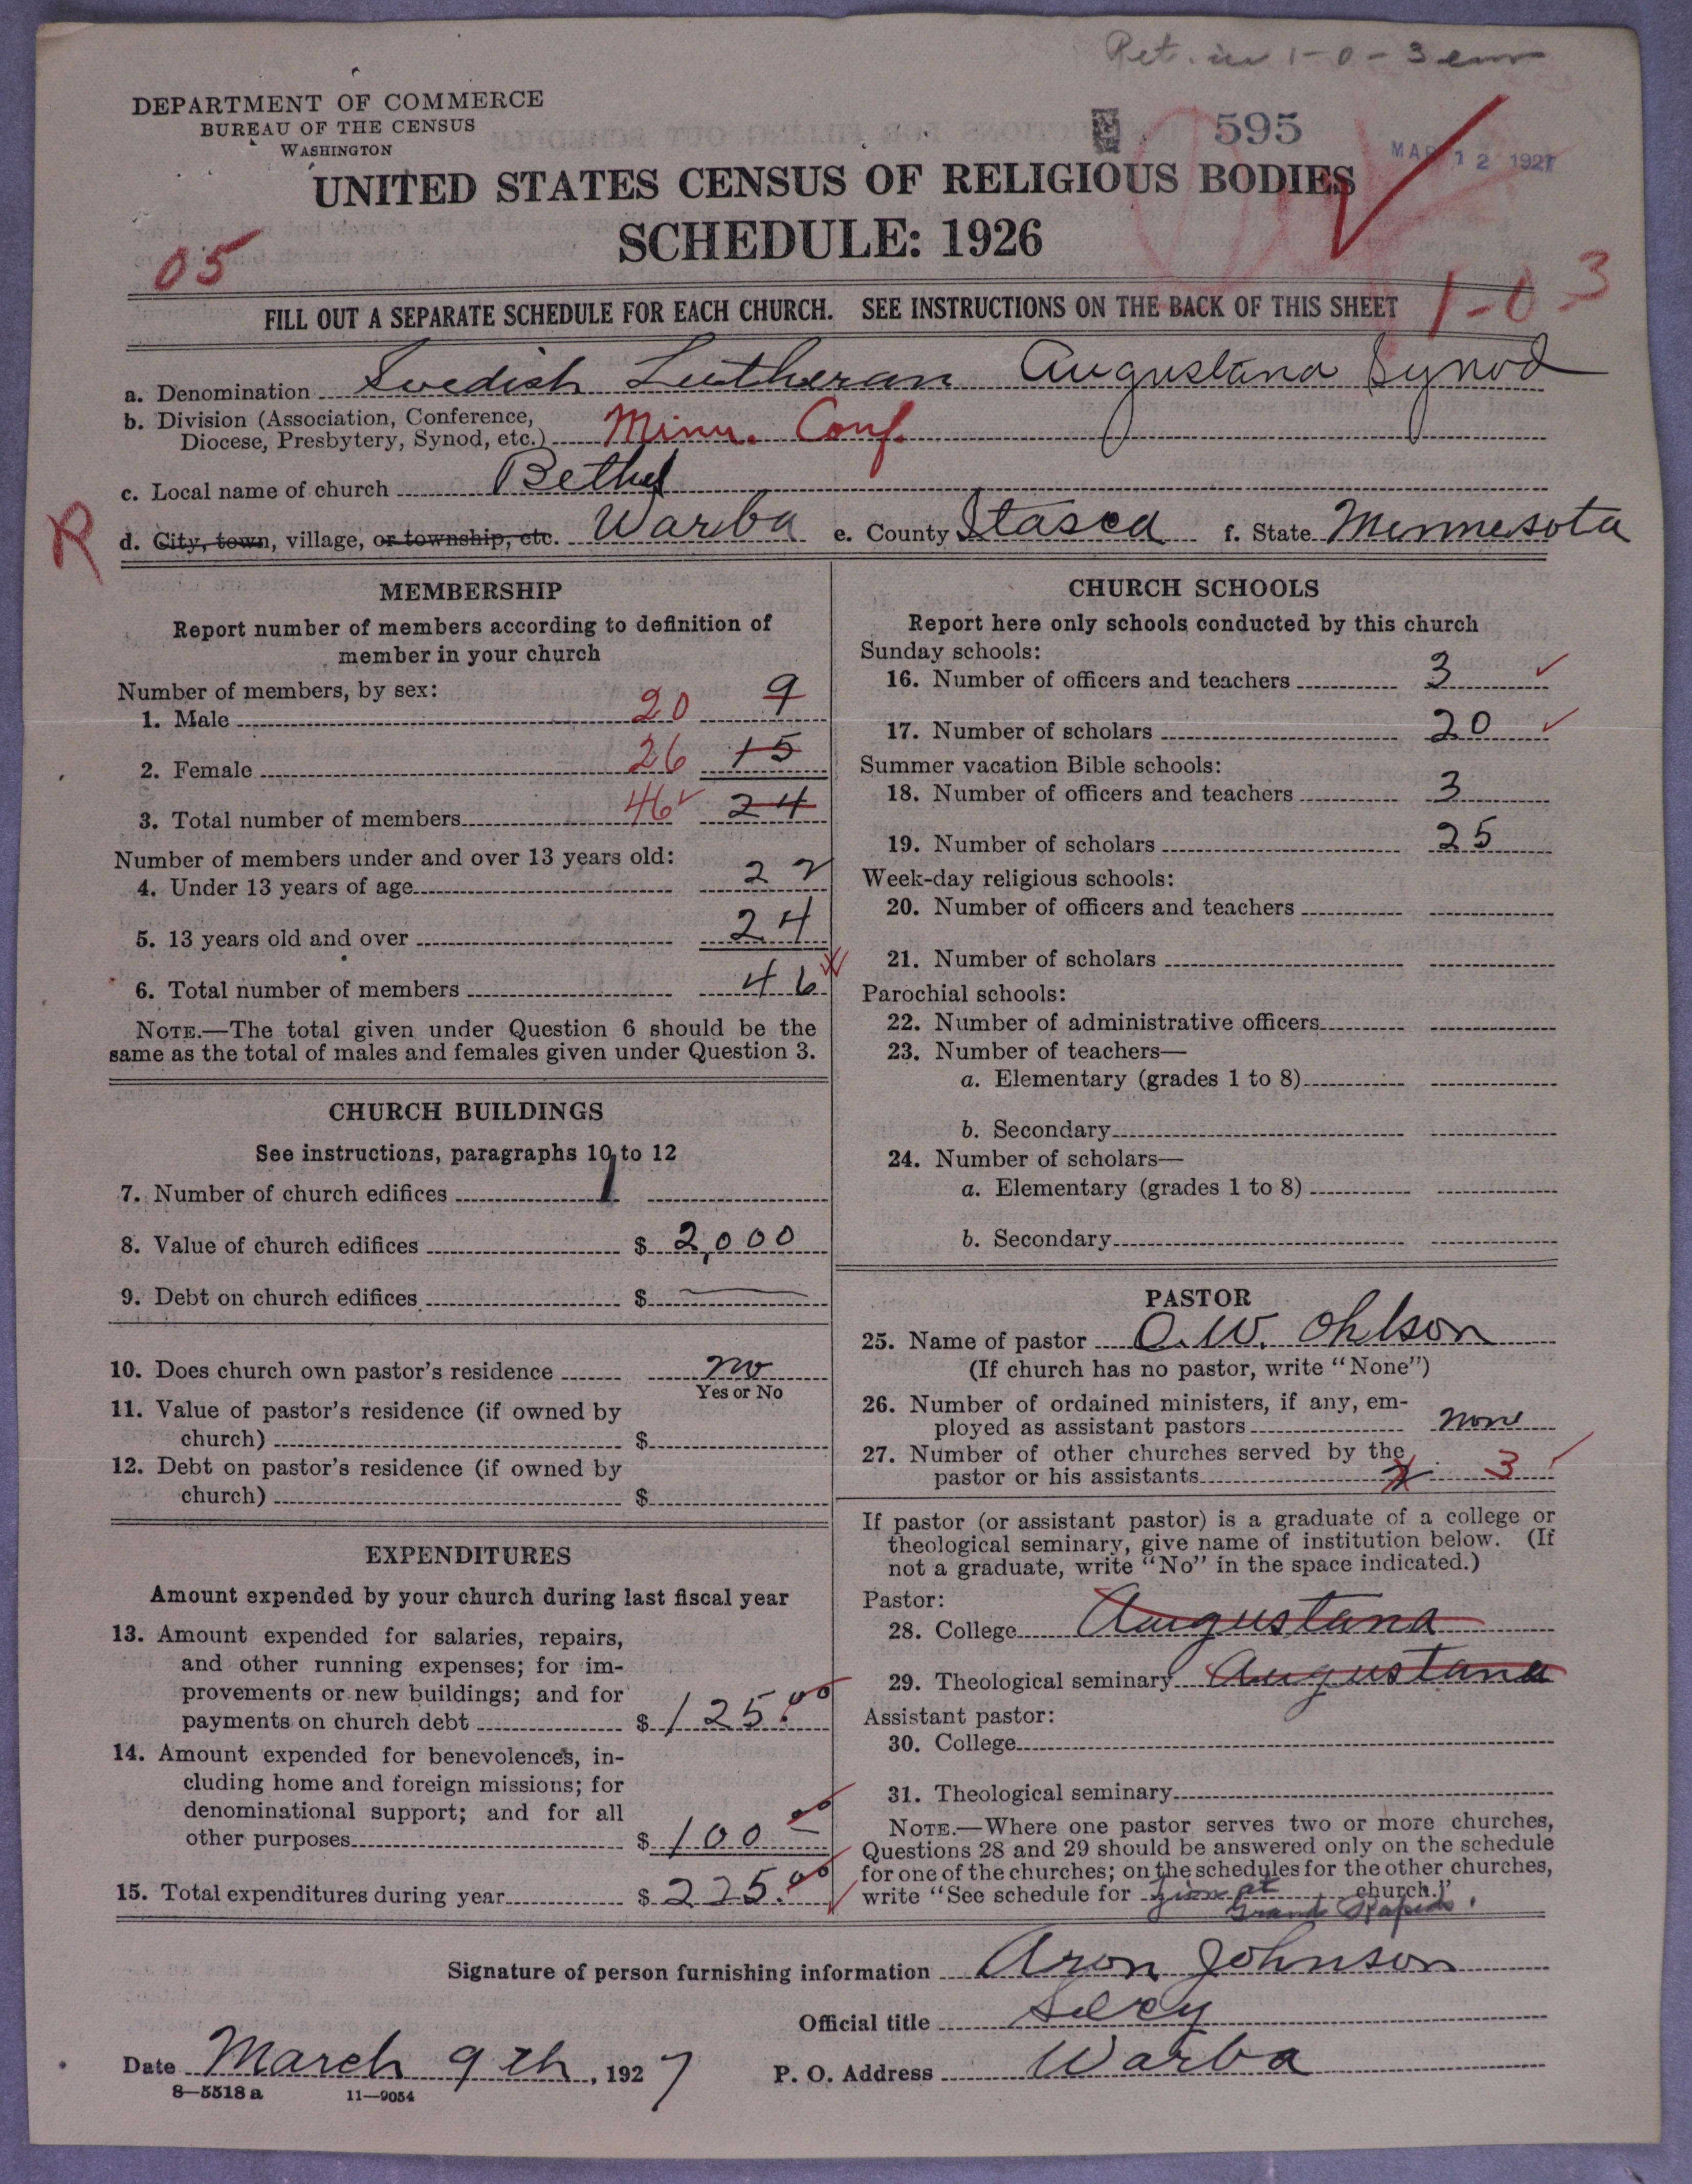 Ret. in 1-0-3
DEPARTMENT OF COMMERCE
BUREAU OF THE CENSUS
WASHINGTON
595
MAR 12 1927
UNITED STATES CENSUS OF RELIGIOUS BODIES
SCHEDULE: 1926
05
FILL OUT A SEPARATE SCHEDULE FOR EACH CHURCH. SEE INSTRUCTIONS ON THE BACK OF THIS SHEET
1-0-3
a. Denomination Swedish Lutheran Augustana Synod
b. Division (Association, Conference,
Diocese, Presbytery, Synod, etc.) Minn. Conf.
c. Local name of church Bethel
R
d. City, town, village, or township, etc. Warba e. County Itasca f. State Minnesota
MEMBERSHIP
Report number of members according to definition of
member in your church
Number of members, by sex:
1. Male 20 9
2. Female 26 15
3. Total number of members 46 24
Number of members under and over 13 years old:
4. Under 13 years of age 22
5. 13 years old and over 24
6. Total number of members 46
NOTE.—The total given under Question 6 should be the
same as the total of males and females given under Question 3.
CHURCH BUILDINGS
See instructions, paragraphs 10 to 12
7. Number of church edifices 1
8. Value of church edifices $ 2,000
9. Debt on church edifices $
10. Does church own pastor's residence no
Yes or No
11. Value of pastor's residence (if owned by
church) $
12. Debt on pastor's residence (if owned by
church) $
EXPENDITURES
Amount expended by your church during last fiscal year
13. Amount expended for salaries, repairs,
and other running expenses; for im-
provements or new buildings; and for
payments on church debt $ 125.00
14. Amount expended for benevolences, in-
cluding home and foreign missions; for
denominational support; and for all
other purposes $ 100 00
15. Total expenditures during year $ 225.00
CHURCH SCHOOLS
Report here only schools conducted by this church
Sunday schools:
16. Number of officers and teachers 3
17. Number of scholars 20
Summer vacation Bible schools:
18. Number of officers and teachers 3
19. Number of scholars 25
Week-day religious schools:
20. Number of officers and teachers
21. Number of scholars
Parochial schools:
22. Number of administrative officers
23. Number of teachers—
a. Elementary (grades 1 to 8)
b. Secondary
24. Number of scholars—
a. Elementary (grades 1 to 8)
b. Secondary
PASTOR
25. Name of pastor O. W. Ohlson
(If church has no pastor, write "None")
26. Number of ordained ministers, if any, em-
ployed as assistant pastors none
27. Number of other churches served by the
pastor or his assistants 3
If pastor (or assistant pastor) is a graduate of a college or
theological seminary, give name of institution below. (If
not a graduate, write "No" in the space indicated.)
Pastor:
28. College Augustana
29. Theological seminary Augustana
Assistant pastor:
30. College
31. Theological seminary
NOTE.—Where one pastor serves two or more churches,
Questions 28 and 29 should be answered only on the schedule
for one of the churches; on the schedules for the other churches,
write "See schedule for Zion at church."
Grand Rapids.
Signature of person furnishing information Aron Johnson
Official title Secy
Date March 9th, 1927 P. O. Address Warba
8—5518 a 11—9054